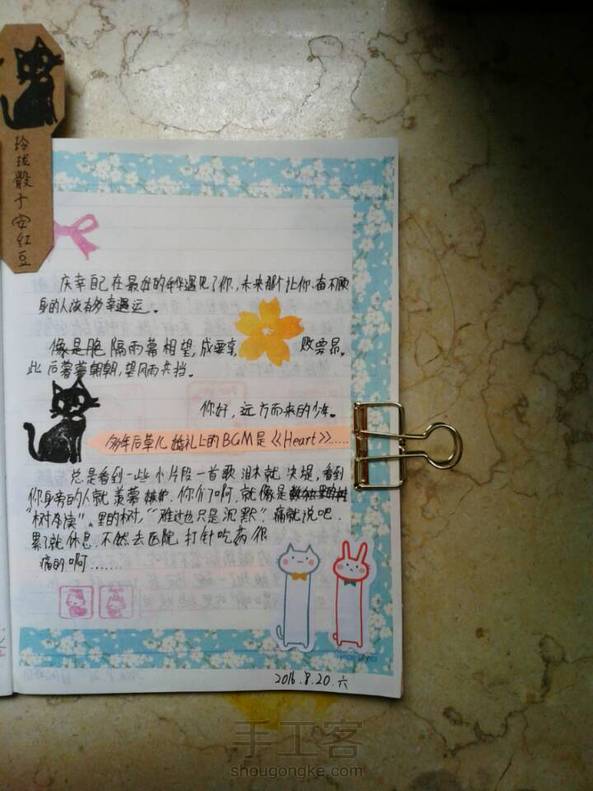 玲珑骰子安红豆
庆幸自己在最好的年华遇见了你,未来那个让你奋不顾
身的人该有多幸运。
像是隐隔雨幕相望,成垂
败票吊。
此后暮暮朝朝,望风雨共挡。
你好,远方而来的少年。
多年后草儿婚礼上的BGM是《Heart》……
总是看到一些小片段一首歌泪水就决堤,看到
你身旁的人就羡慕。你们啊,就像是
"树海凄"。里的树,"难过也只是沉默"。痛就说吧
累了就休息,不然去医院打针吃药很
痛的啊……
2016.8.20.六
手工客
shougongke.com